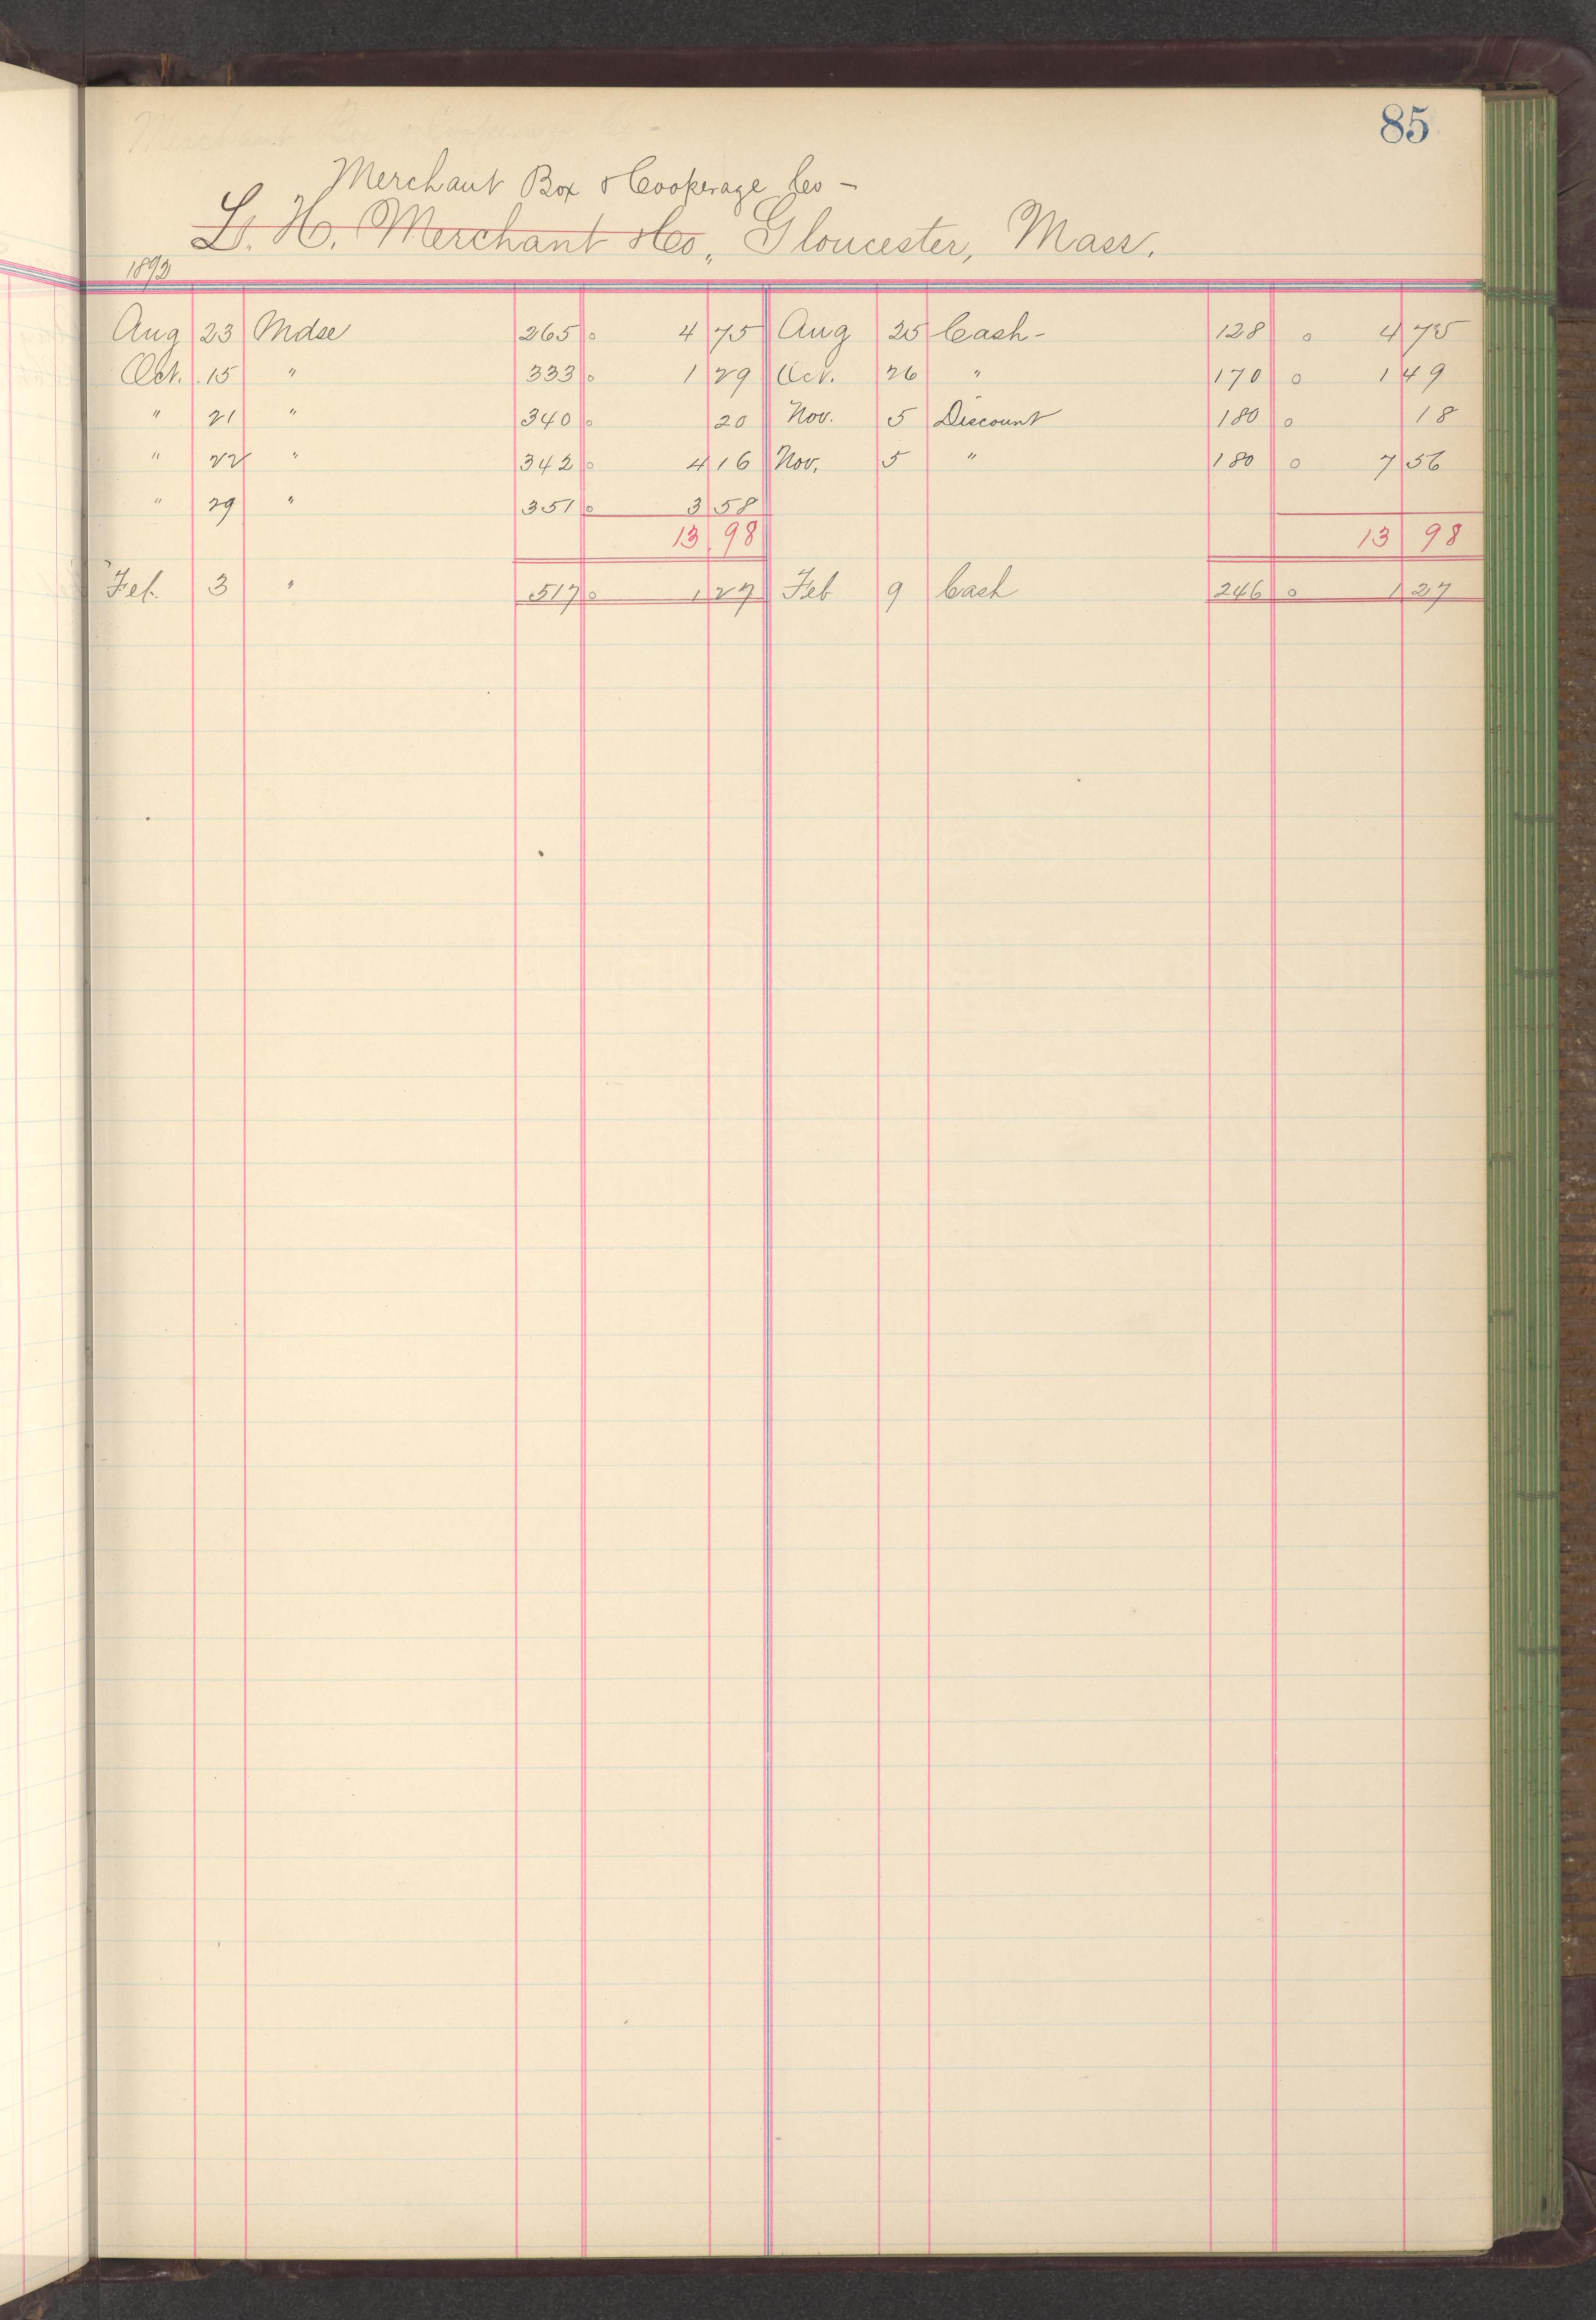 85
Merchant Box & Cooperage Co -
L. H. Merchant & Co., Gloucester, Mass.
1892
Aug 23 Mdse 265 o 4 75 Aug 25 Cash - 128 o 4 75
Oct. 15 " 333 o 1 29 Oct. 26 " 170 o 1 49
" 21 " 340 o 20 Nov. 5 Discount 180 o 18
" 22 " 342 o 4 16 Nov. 5 " 180 o 7 56
" 29 " 351 o 3 58
13 98 13 98
Feb. 3 " 517 o 1 27 Feb 9 Cash 246 o 1 27